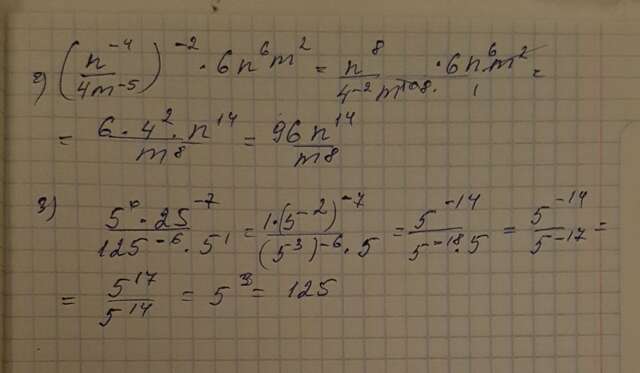 2) (n^-4 / 4m^-5)^-2 · 6n^6m^2 = n^8 / 4^-2 m^10 8 · 6n^6m^2 / 1 =
= 6 · 4^2 · n^14 / m^8 = 96n^14 / m^8
3) 5^0 · 25^-7 / 125^-6 · 5^1 = 1·(5^-2)^-7 / (5^3)^-6 · 5 = 5^-14 / 5^-18 · 5 = 5^-14 / 5^-17 =
= 5^17 / 5^14 = 5^3 = 125